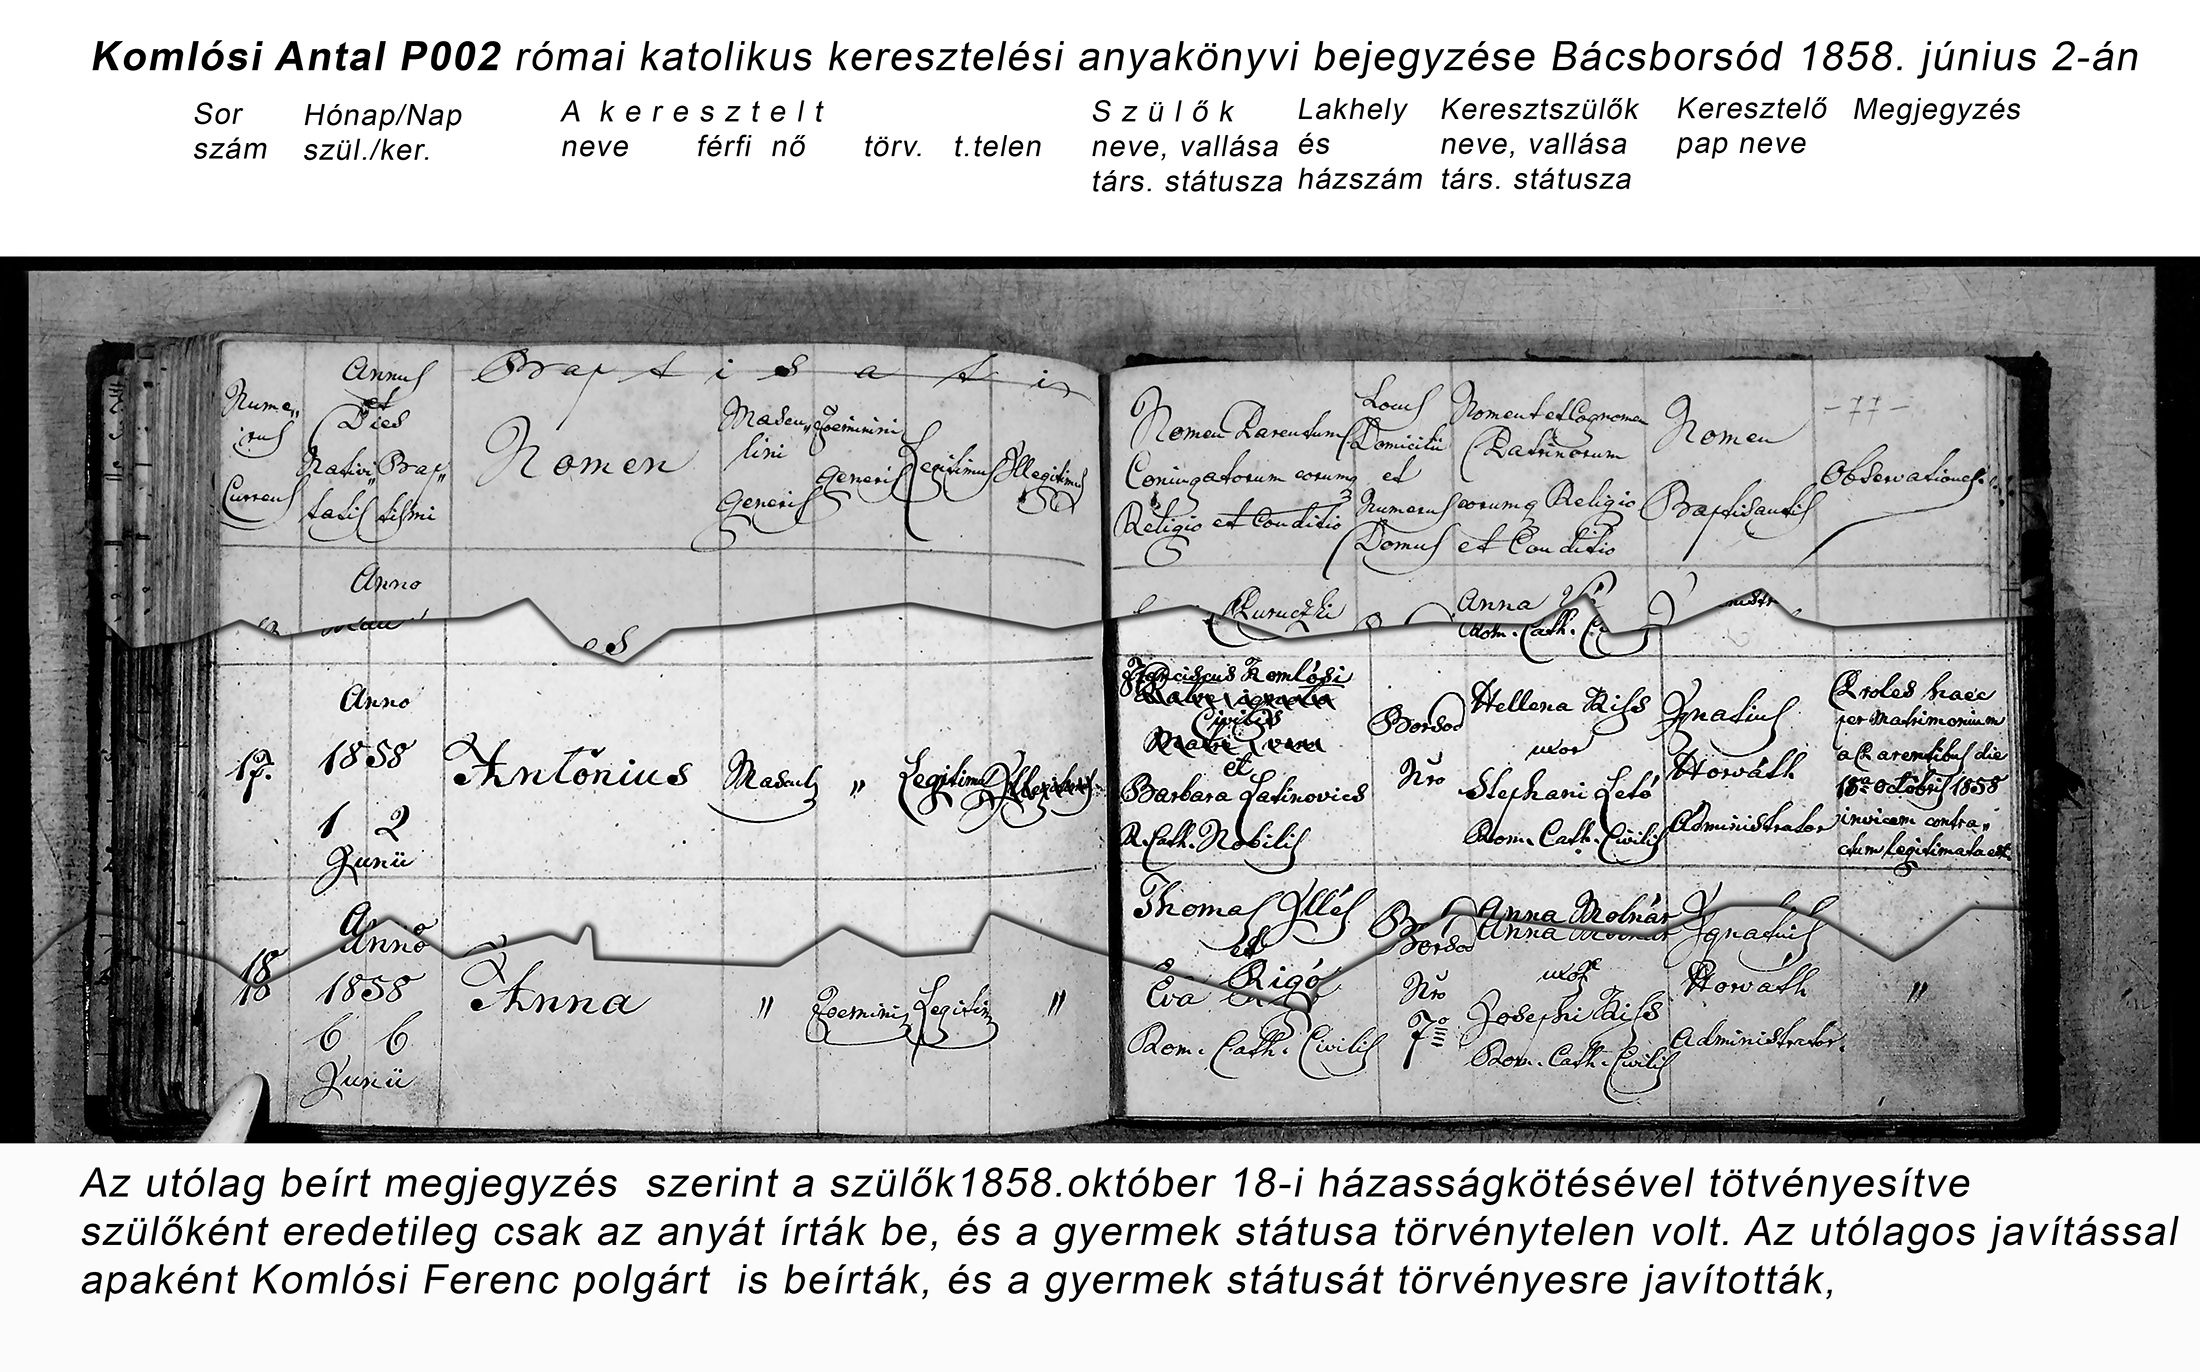 Komlósi Antal P002 római katolikus keresztelési anyakönyvi bejegyzése Bácsborsód 1858. június 2-án
Sor szám
Hónap/Nap szül./ker.
A keresztelt
neve férfi nő törv. t.telen
Szülők neve, vallása társ. státusza
Lakhely és házszám
Keresztszülők neve, vallása társ. státusza
Keresztelő pap neve
Megjegyzés
Nume„
rus
Currens
Annus
et
Dies
Nativi„
tatis
Bap„
tismi
Baptisati
Nomen
Mascu„
lini
Generis
Foeminini
Generis
Legitimus
Illegitimus
Nomen Parentum
Coniugatorum eorumq
Religio et Conditio
Locus
Domicilii
et
Numerus
Domus
Nomen et Cognomen
Patrinorum
eorumq Religio
et Conditio
Nomen
Baptisantis
-77-
Observationes
Anno
Anna
Rom. Cath.
17.
Anno
1858
1 2
Junii
Antonius
Mascul
„
Legitim
Franciscus Komlósi
Civilis
et
Barbara Latinovics
R. Cath. Nobilis
Borsod
Nro
Hellena Kiss
uxor
Stephani Lető
Rom. Cath. Civilis
Ignatius
Horváth
Administrator
Proles haec
per Matrimonium
a Parentibus die
18a Octobris 1858
invicem contra„
ctum legitimata est.
18
Anno
1858
6 6
Junii
Anna
„
Foeminin
Legitim
„
Thomas Illés
et
Eva Rigó
Rom. Cath. Civilis
Borsod
Nro
7
Anna Molnár
uxor
Josephi Kiss
Rom. Cath. Civilis
Ignatius
Horváth
Administrator.
„
Az utólag beírt megjegyzés szerint a szülők1858.október 18-i házasságkötésével tötvényesítve
szülőként eredetileg csak az anyát írták be, és a gyermek státusa törvénytelen volt. Az utólagos javítással
apaként Komlósi Ferenc polgárt is beírták, és a gyermek státusát törvényesre javították,